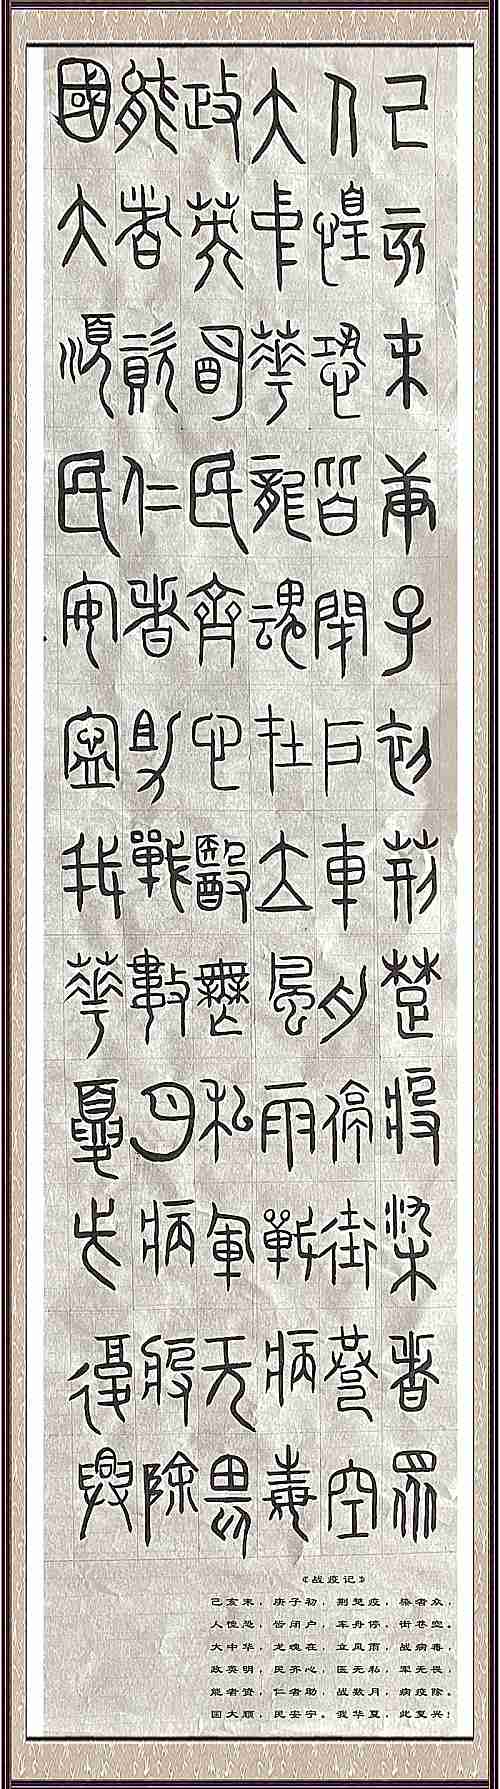 己亥末庚子初荆楚疫染者眾
人惶恐皆閉戶車舟停街巷空
大中華龍魂在立風雨戰病毒
政英明民齊心醫無私軍无畏
能者資仁者助戰數月病疫除
國大順民安寧我華夏此復興
《战疫记》
己亥末，庚子初，荆楚疫，染者众，
人惶恐，皆闭户，车舟停，街巷空。
大中华，龙魂在，立风雨，战病毒，
政英明，民齐心，医无私，军无畏，
能者资，仁者助，战数月，病疫除。
国大顺，民安宁。我华夏，此复兴！